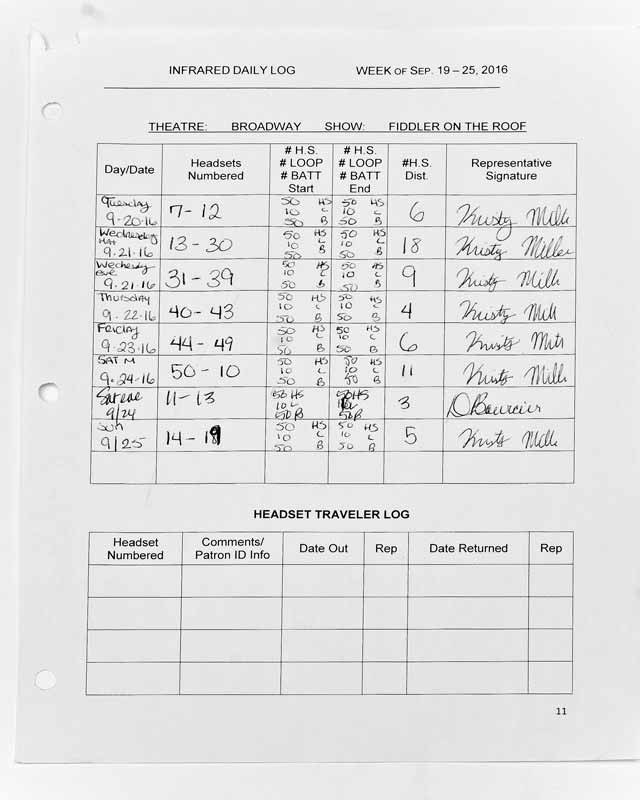 INFRARED DAILY LOG WEEK OF SEP. 19 – 25, 2016
THEATRE: BROADWAY SHOW: FIDDLER ON THE ROOF
Day/Date Headsets Numbered # H.S. # LOOP # BATT Start # H.S. # LOOP # BATT End #H.S. Dist. Representative Signature
Tuesday 9-20-16 7-12 50 HS 10 L 50 B 50 HS 10 L 50 B 6 Kristy Mill
Wednesday MAT 9-21-16 13-30 50 HS 10 L 50 B 50 HS 10 L 50 B 18 Kristy Miller
Wednesday eve 9-21-16 31-39 50 HS 10 L 50 B 50 HS 10 L 50 B 9 Kristy Mill
Thursday 9-22-16 40-43 50 HS 10 L 50 B 50 HS 10 L 50 B 4 Kristy
Friday 9-23-16 44-49 50 HS 10 L 50 B 50 HS 10 L 50 B 6 Kristy
SAT M 9-24-16 50-10 50 HS 10 L 50 B 50 HS 10 L 50 B 11 Kristy Mill
Sat eve 9/24 11-13 50 HS 10 L 50 B 50 HS 10 L 50 B 3 D Bourcier
Sun 9/25 14-18 50 HS 10 L 50 B 50 HS 10 L 50 B 5 Kristy Mill
HEADSET TRAVELER LOG
Headset Numbered Comments/ Patron ID Info Date Out Rep Date Returned Rep
11